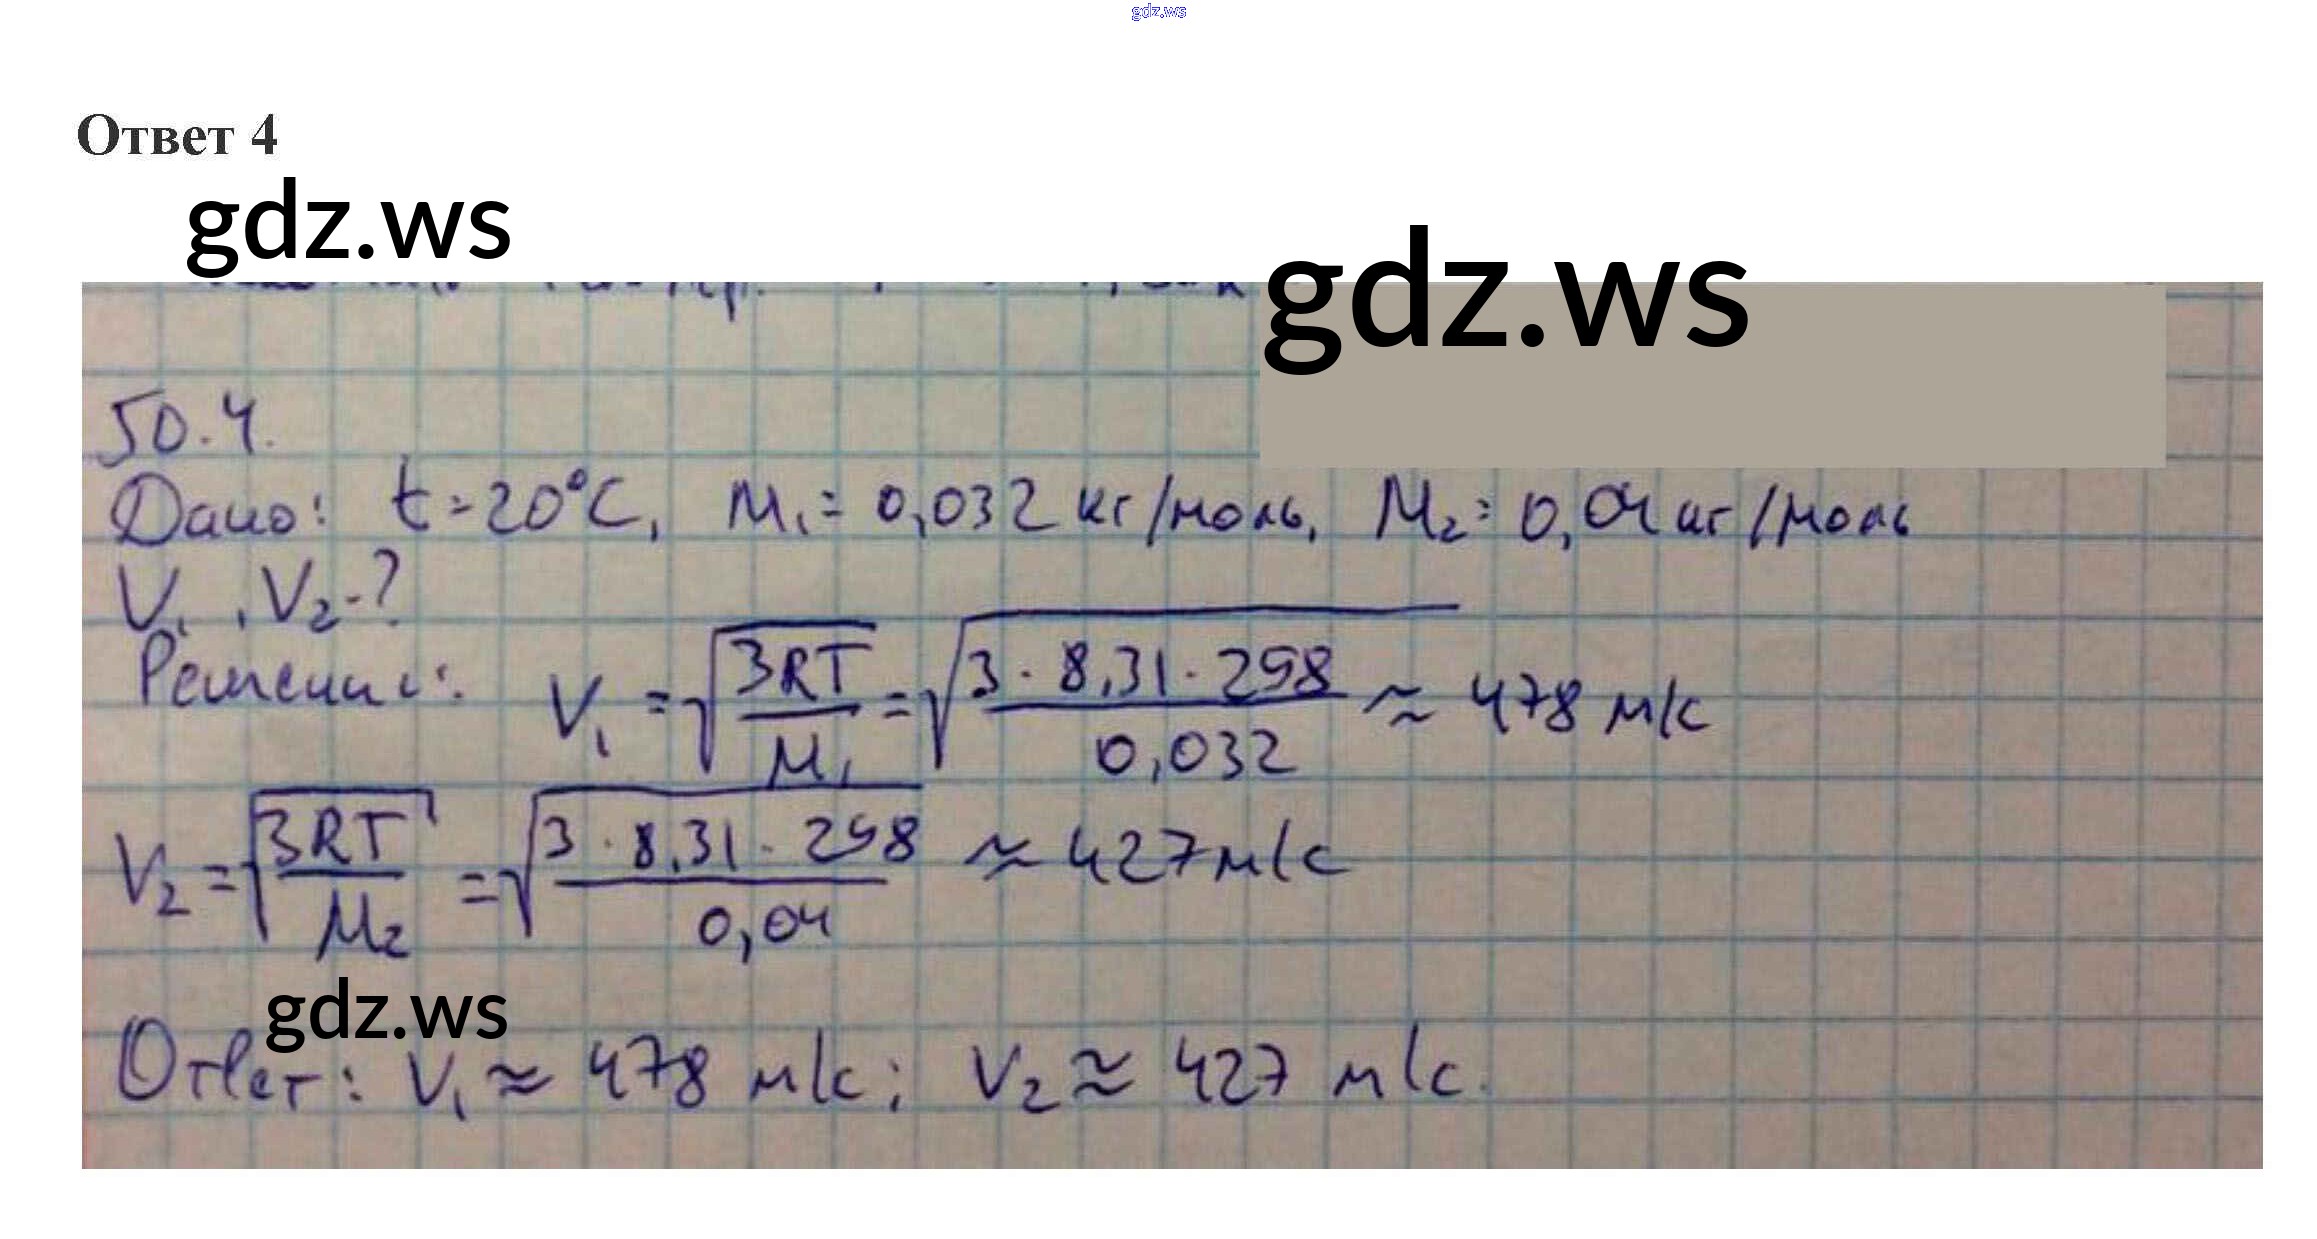 gdz.ws
Ответ 4
gdz.ws
gdz.ws
50.4.
Дано: t = 20°C, M₁ = 0,032 кг/моль, M₂ = 0,04 кг/моль
V₁, V₂ - ?
Решение: V₁ = √(3RT/M₁) = √(3 · 8,31 · 298/0,032) ≈ 478 м/с
V₂ = √(3RT/M₂) = √(3 · 8,31 · 298/0,04) ≈ 427 м/с
gdz.ws
Ответ: V₁ ≈ 478 м/с; V₂ ≈ 427 м/с.